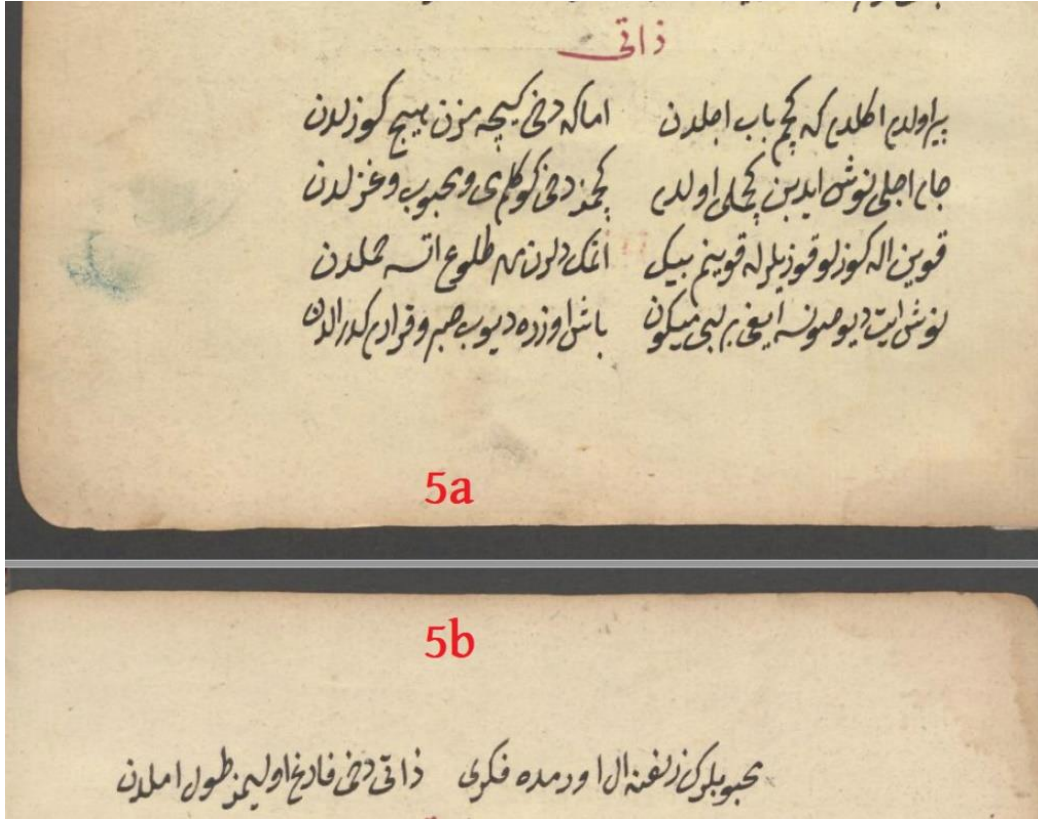 ذاتی
پیر اولدم اکلدم که کچم باب اجلدن اما که دخی کیچه مزن هیچ کوزلدن
جام اجلی نوش ایدین کچملی اولدم کچمز دخی کوکلم می و محبوب و غزلدن
قوین اله کوزلو قوزیلرله قوینم بیک انک دلرن طلوع اتسه حملدن
نوش ایت دیو صونسه ایغی بر لبی میکون باش اوزره دیوب صبر و قرارم کدر الدن
5a
5b
محبوبلرک زلفنه ال اورمده فکری ذاتی دخی فارغ اولیمز طول املدن